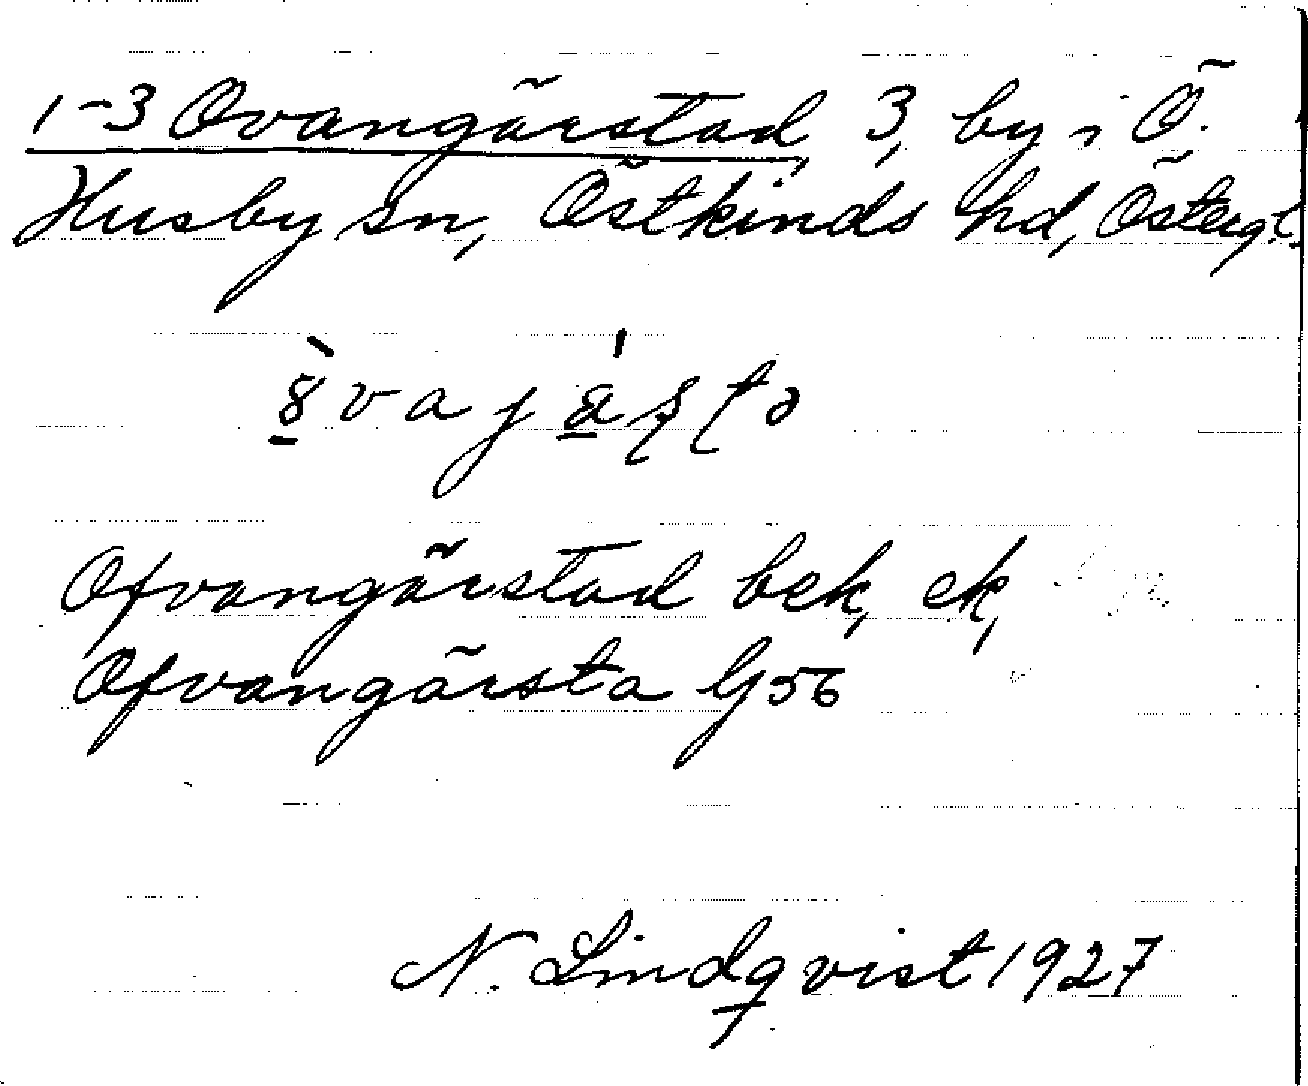 1-3 Ovangärstad, 3, by i Ö.
Husby sn, Östkinds hd, Östergl.
Ofvangärstad bek, ek,
Ofvangärsta G56
N. Lindqvist 1927